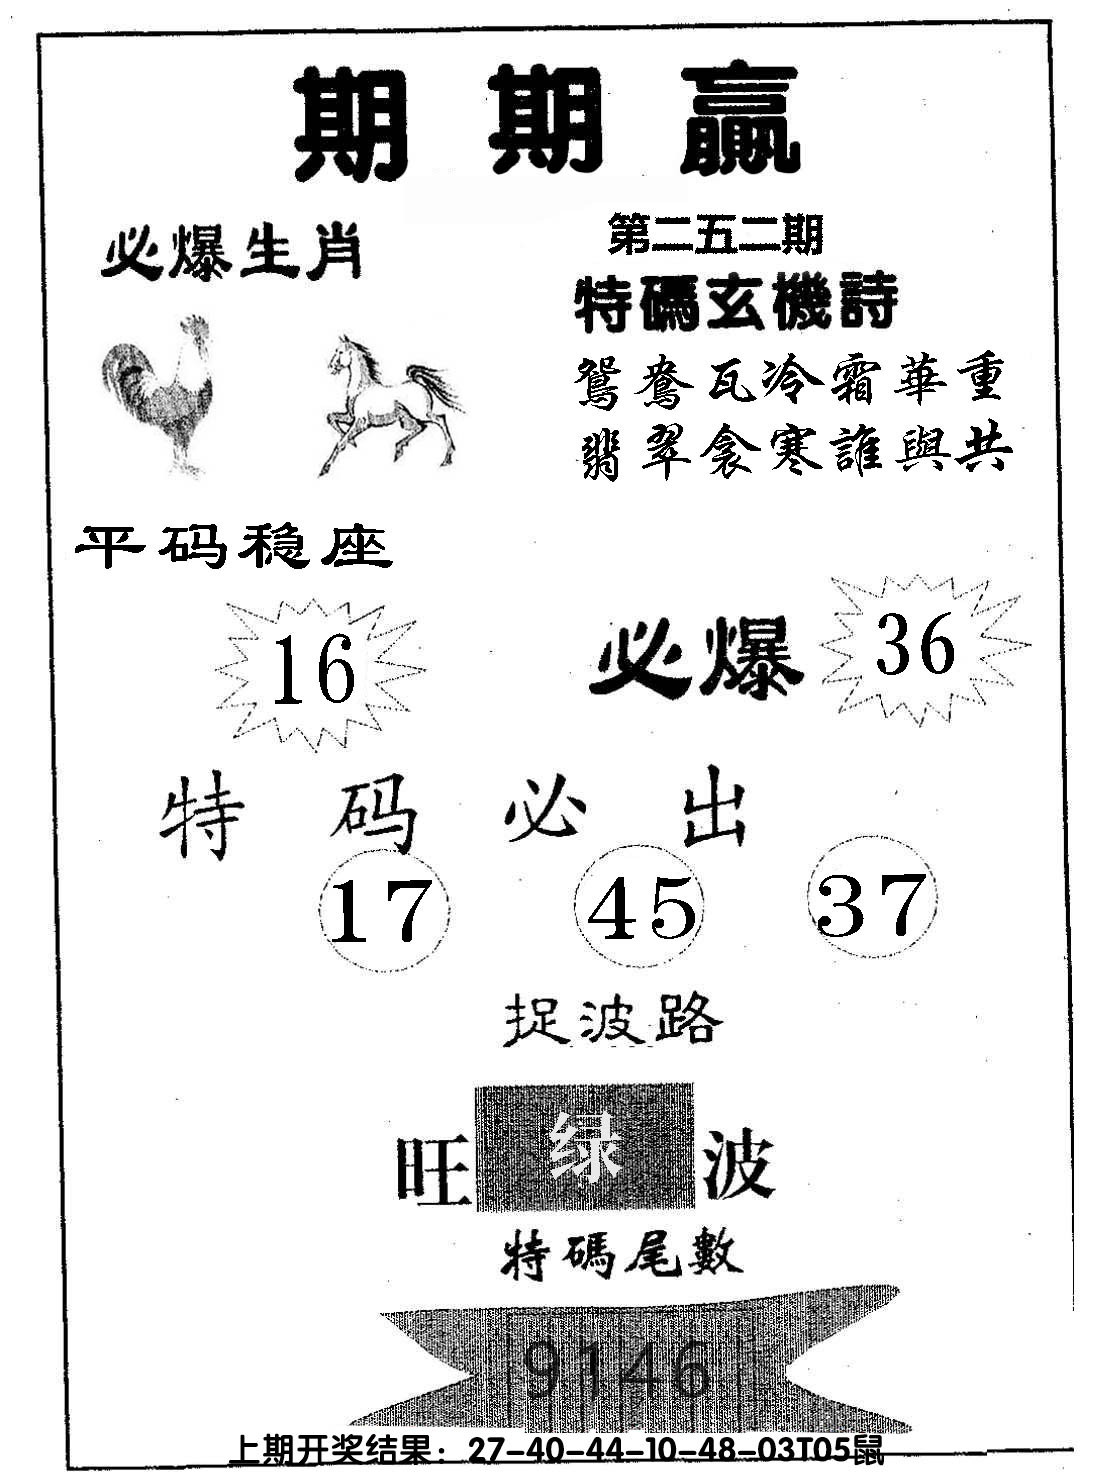 期期赢
必爆生肖
第二五二期
特碼玄機詩
鴛鴦瓦冷霜華重
翡翠衾寒誰與共
平码稳座
16
必爆
36
特码必出
17
45
37
捉波路
旺绿波
特碼尾數
9146
上期开奖结果：27-40-44-10-48-03T05鼠